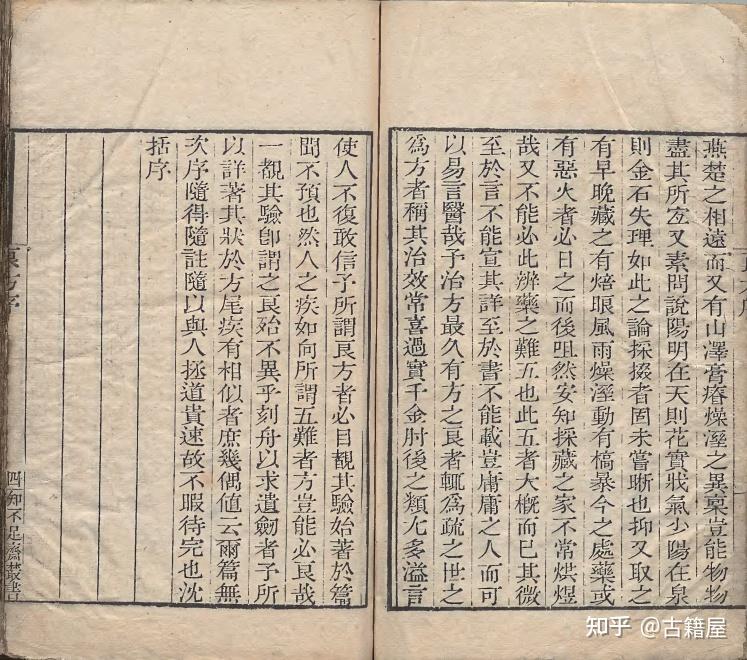 燕楚之相遠而又有山澤膏瘠燥溼之異稟豈能物物
盡其所宐又素問說陽明在天則花實戕氣少陽在泉
則金石失理如此之論採掇者固未嘗晰也抑又取之
有早晚藏之有焙眼風雨燥溼動有槁暴今之處藥或
有惡火者必日之而後咀然安知採藏之家不常烘煜
哉又不能必此辨藥之難五也此五者大槪而已其微
至於言不能宣其詳至於書不能載豈庸庸之人而可
以易言醫哉予治方最久有方之良者輒爲疏之世之
爲方者稱其治效常喜過實千金肘後之類尤多溢言
使人不復敢信予所謂良方者必目覩其驗始著於篇
聞不預也然人之疾如向所謂五難者方豈能必良哉
一覩其驗卽謂之良殆不異乎刻舟以求遺劒者予所
以詳著其狀於方尾疾有相似者庶幾偶値云爾篇無
次序隨得隨註隨以與人拯道貴速故不暇待完也沈
括序
良方序
四
知不足齋叢書
知乎 @古籍屋